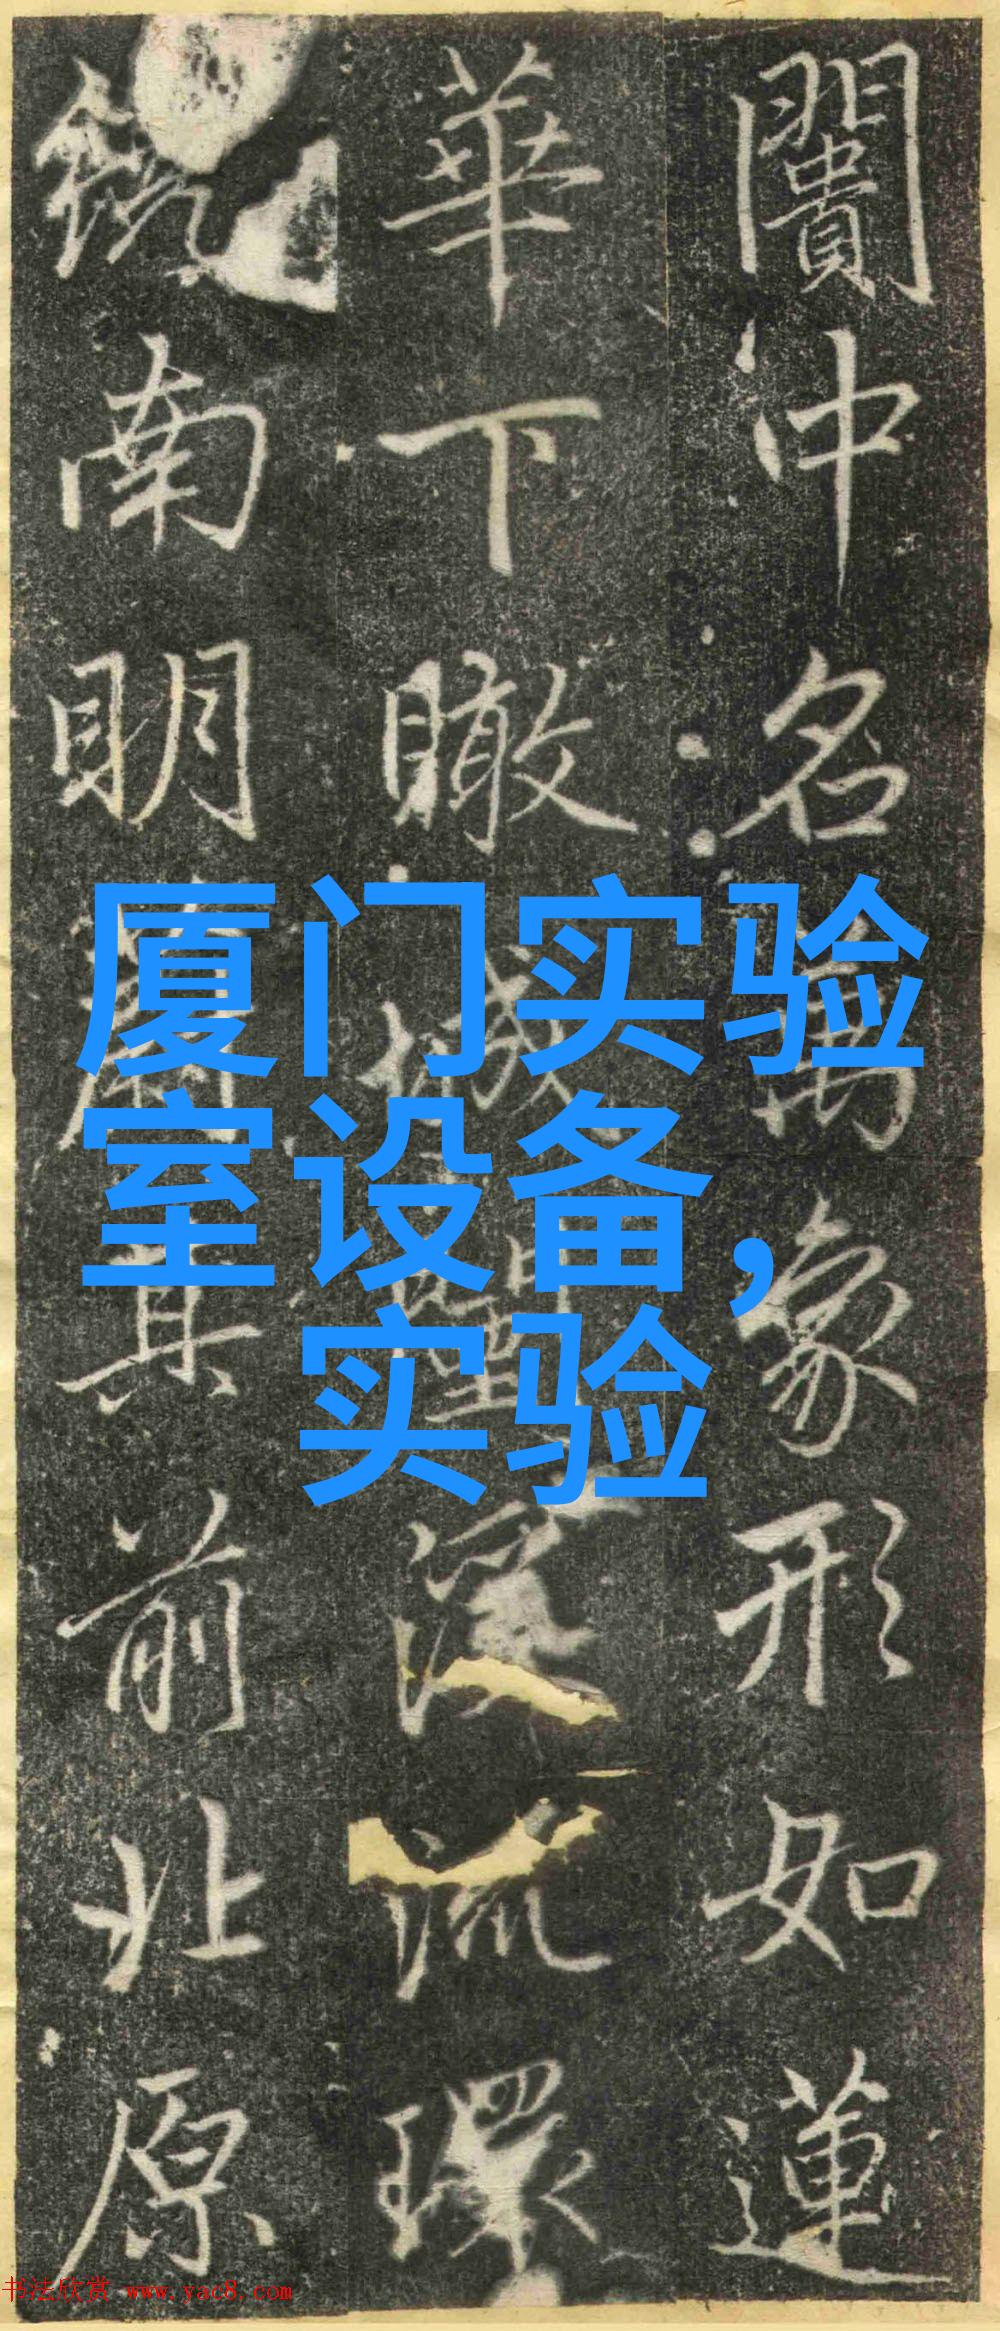 闠中名萬象形如蓮
華下瞰城闉深流環
鏡南明其前北原
厦门实验
室设备，
实验
书法欣赏 www.yac8.com